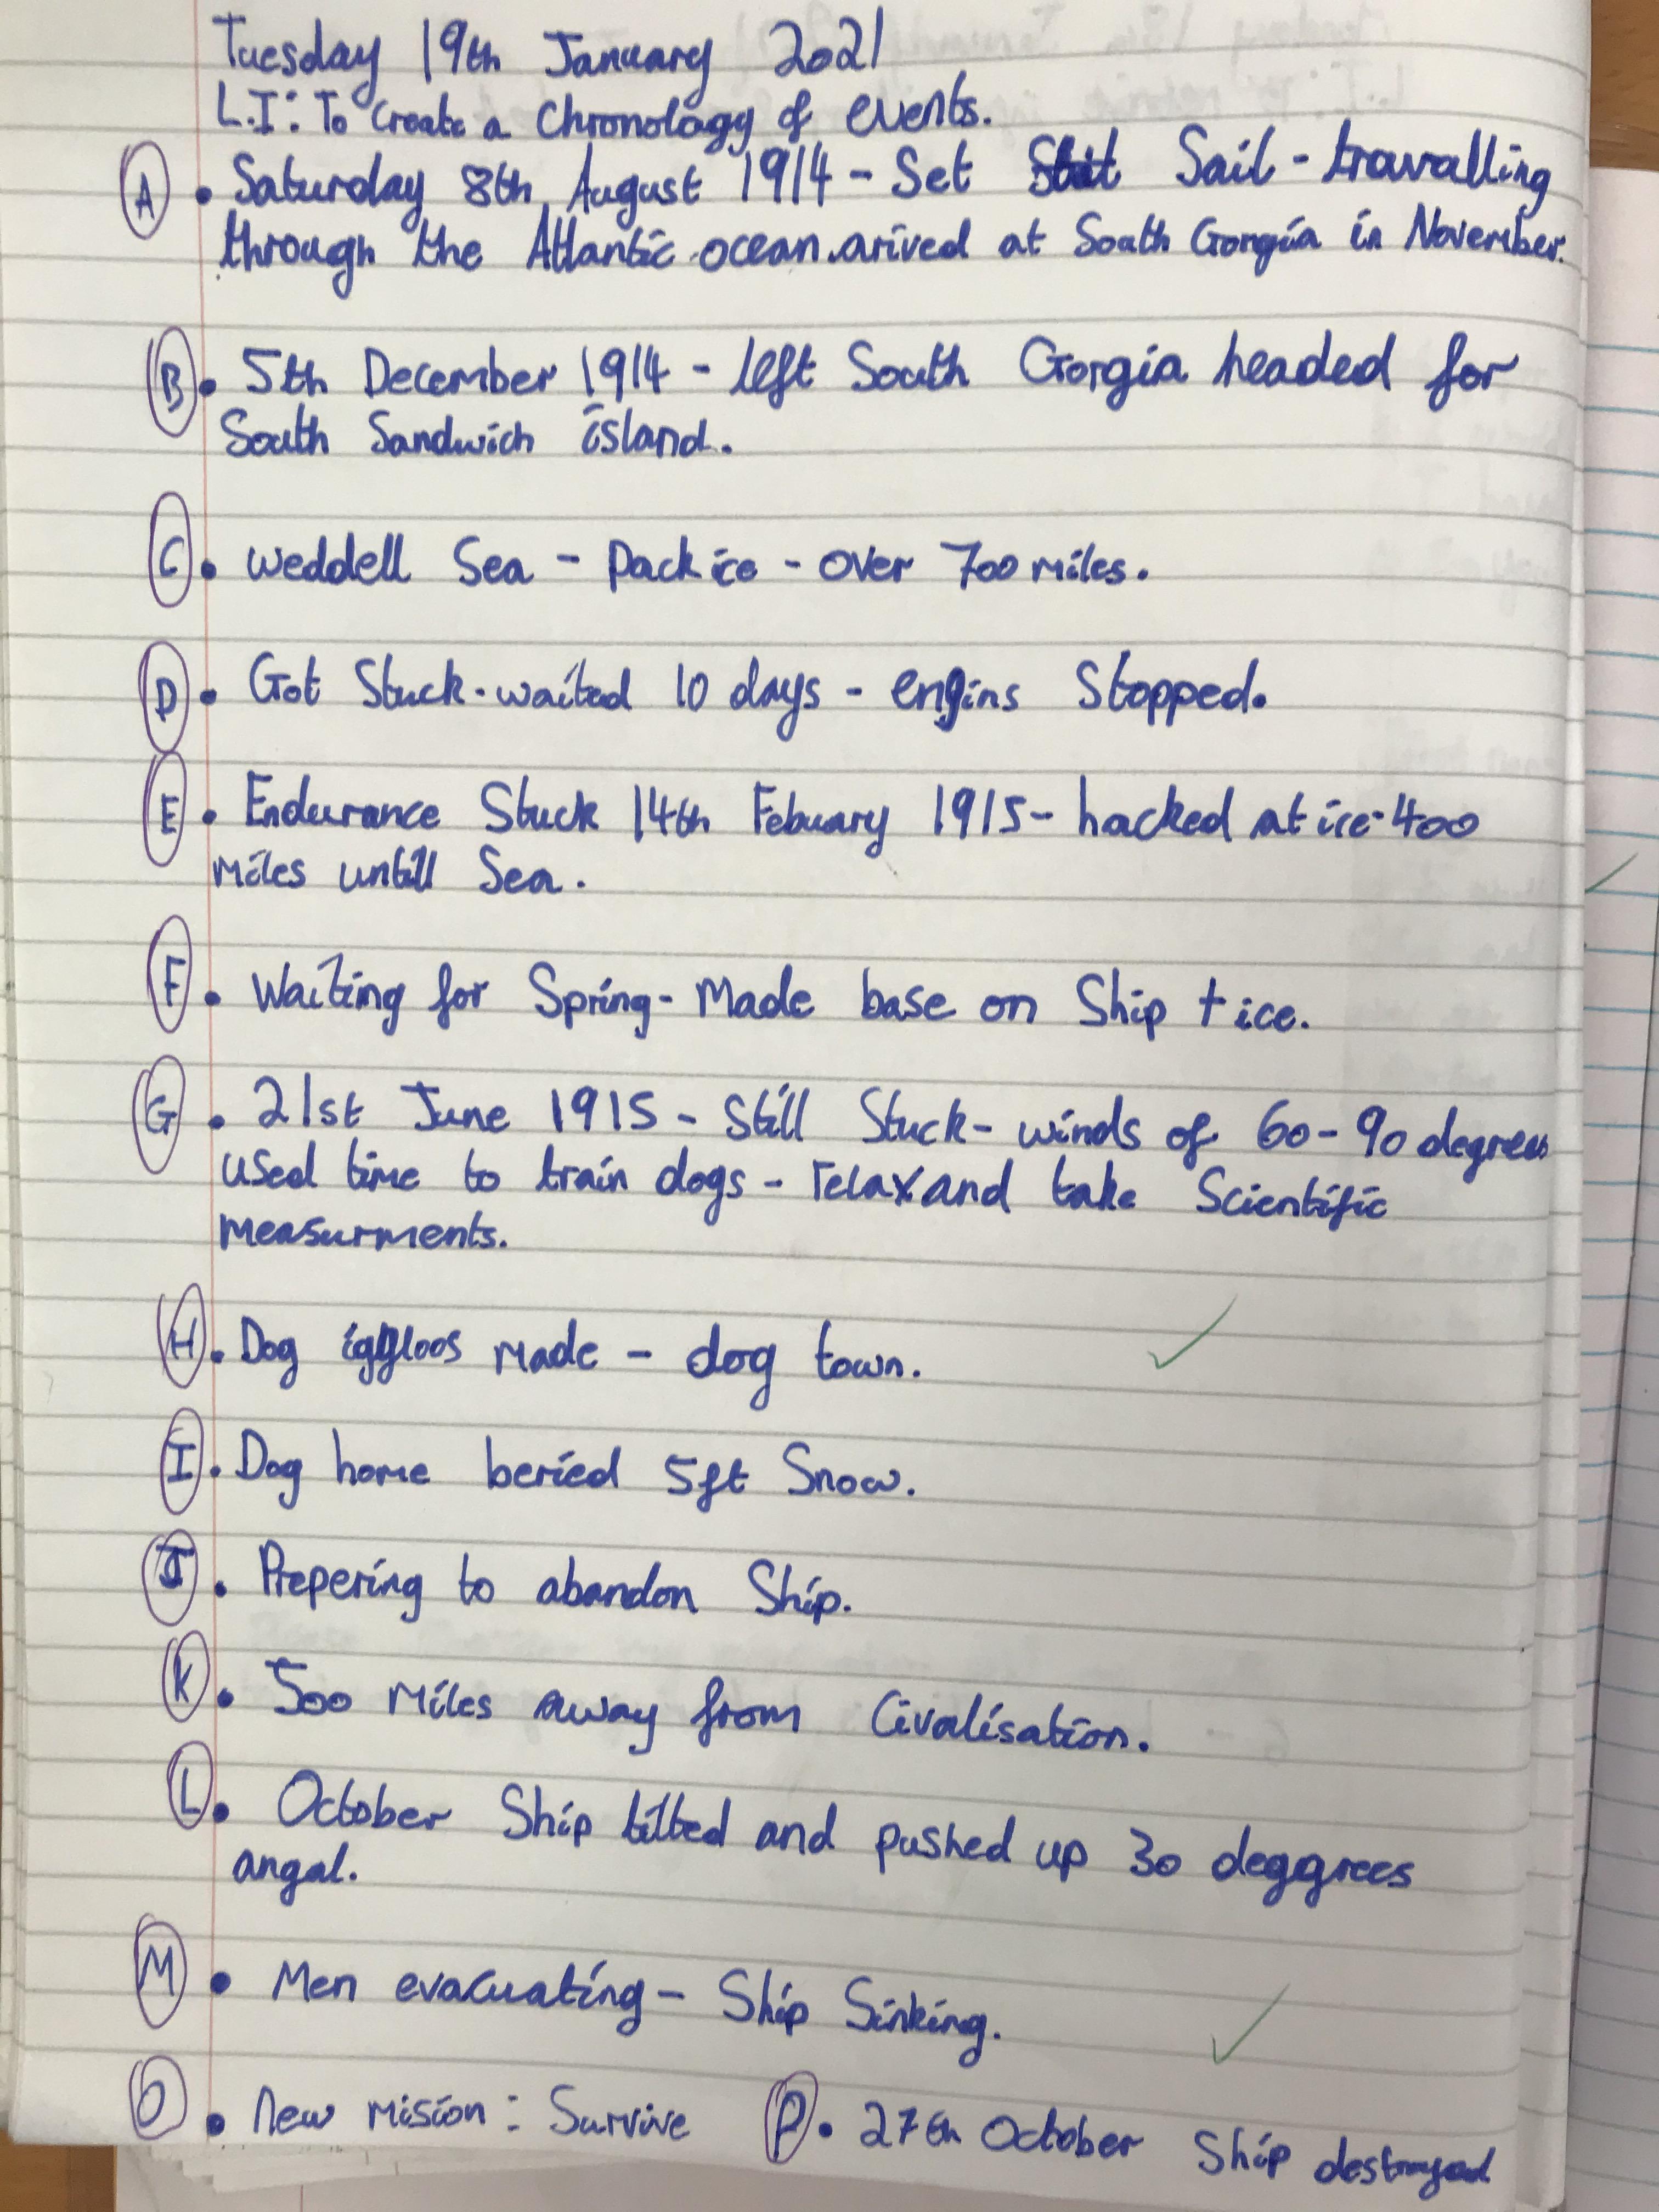 Tuesday 19th January 2021
L.I: To Create a Chronology of events.
A • Saturday 8th August 1914 - Set Sail - travalling
through the Atlantic ocean. arived at South Gorgia in November.
B • 5th December 1914 - left South Gorgia headed for
South Sandwich island.
C • Weddell Sea - Pack ice - over 700 miles.
D • Got Stuck - waited 10 days - engins Stopped.
E • Endurance Stuck 14th Febuary 1915 - hacked at ice - 400
miles untill Sea.
F • Waiting for Spring - Made base on Ship + ice.
G • 21st June 1915 - Still Stuck - winds of 60-90 degrees
used time to train dogs - relax and take Scientific
measurments.
H • Dog iggloos made - dog town.
I • Dog home beried 5ft Snow.
J • Prepering to abandon Ship.
K • 500 miles away from Civalisation.
L • October Ship tilted and pushed up 30 deggrees
angal.
M • Men evacuating - Ship Sinking.
O • New mision: Survive P • 27th October Ship destroyed